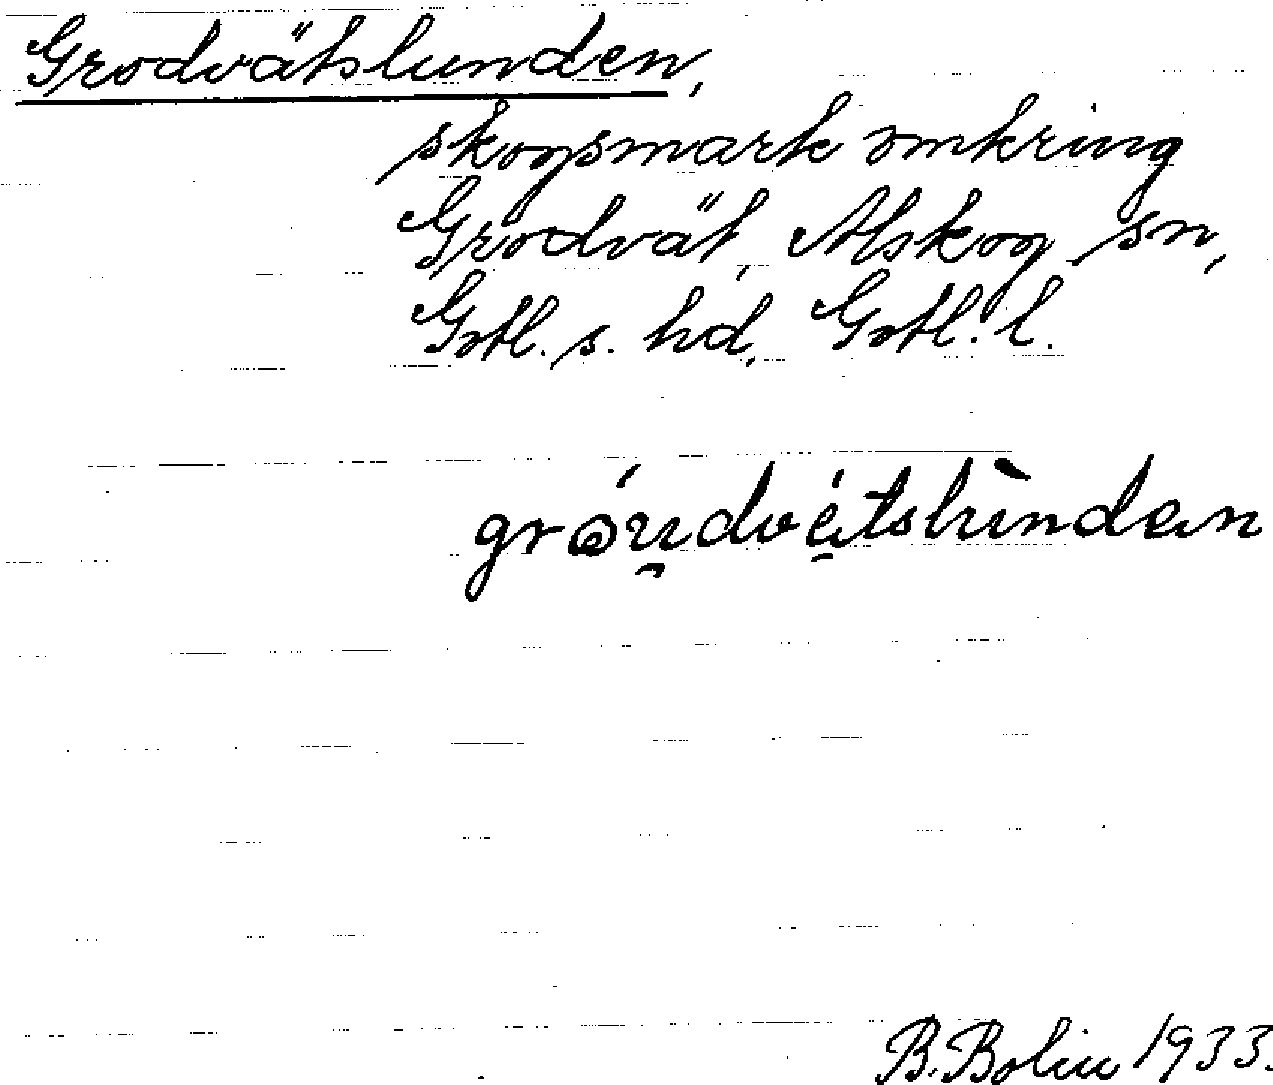 Grodvätslunden,
skogsmark omkring
Grodvät, Alskog sn,
Gotl. s. hd, Gotl. l.
gróu̯dvétslùndan
B. Bolin 1933.